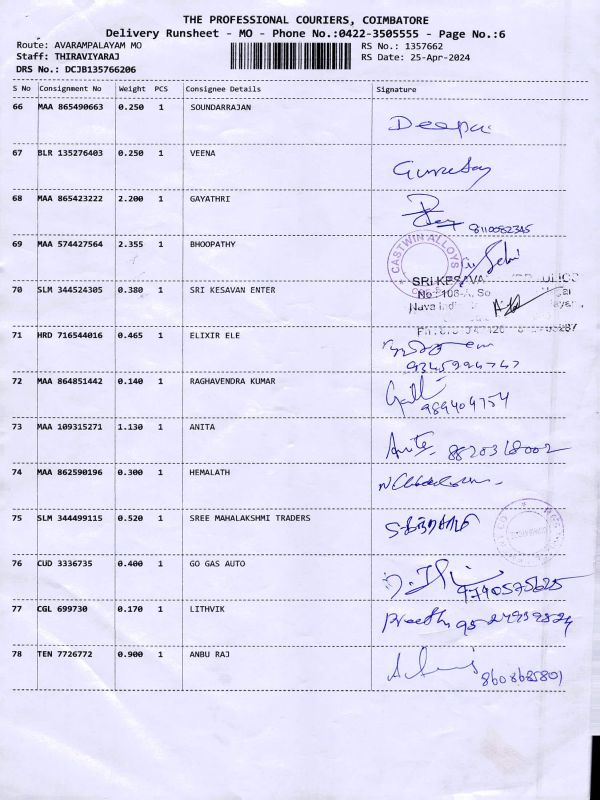 THE PROFESSIONAL COURIERS, COIMBATORE
Delivery Runsheet - MO - Phone No.:0422-3505555 - Page No.:6
Route: AVARAMPALAYAM MO RS No.: 1357662
Staff: THIRAVIYARAJ RS Date: 25-Apr-2024
DRS No.: DCJB135766206
S No Consignment No Weight PCS Consignee Details Signature
66 MAA 865490663 0.250 1 SOUNDARRAJAN
Deepa
67 BLR 135276403 0.250 1 VEENA
68 MAA 865423222 2.200 1 GAYATHRI
8110082345
69 MAA 574427564 2.355 1 BHOOPATHY
CASTWIN ALLOYS
70 SLM 344524305 0.380 1 SRI KESAVAN ENTER
SRI KESAVA
No: 108-A, So
71 HRD 716544016 0.465 1 ELIXIR ELE
72 MAA 864851442 0.140 1 RAGHAVENDRA KUMAR
989404754
73 MAA 109315271 1.130 1 ANITA
Anita 8820368002
74 MAA 862590196 0.300 1 HEMALATH
75 SLM 344499115 0.520 1 SREE MAHALAKSHMI TRADERS
76 CUD 3336735 0.400 1 GO GAS AUTO
9790575625
77 CGL 699730 0.170 1 LITHVIK
Preethi
78 TEN 7726772 0.900 1 ANBU RAJ
8608685801